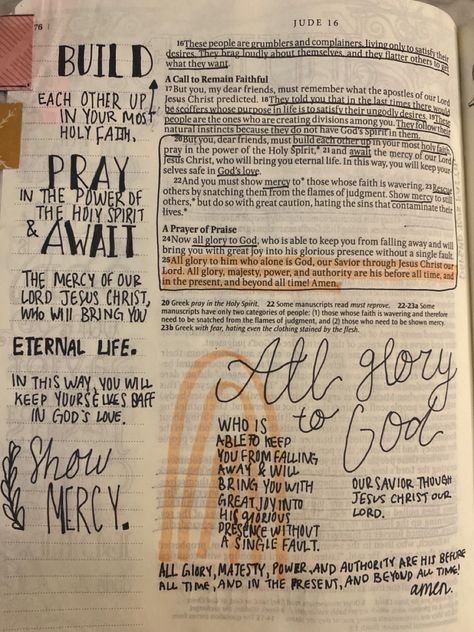 76
JUDE 16
BUILD
EACH OTHER UP
IN YOUR MOST
HOLY FAITH.
PRAY
IN THE POWER OF
THE HOLY SPIRIT
& AWAIT
THE MERCY OF OUR
LORD JESUS CHRIST,
WHO WILL BRING YOU
ETERNAL LIFE.
IN THIS WAY, YOU WILL
KEEP YOURSELVES SAFE
IN GOD'S LOVE.
Show
MERCY.
16 These people are grumblers and complainers, living only to satisfy their
desires. They brag loudly about themselves, and they flatter others to get
what they want.
A Call to Remain Faithful
17 But you, my dear friends, must remember what the apostles of our Lord
Jesus Christ predicted. 18 They told you that in the last times there would
be scoffers whose purpose in life is to satisfy their ungodly desires. 19 These
people are the ones who are creating divisions among you. They follow their
natural instincts because they do not have God's Spirit in them.
20 But you, dear friends, must build each other up in your most holy faith,
pray in the power of the Holy Spirit,* 21 and await the mercy of our Lord
Jesus Christ, who will bring you eternal life. In this way, you will keep your-
selves safe in God's love.
22 And you must show mercy to* those whose faith is wavering. 23 Rescue
others by snatching them from the flames of judgment. Show mercy to still
others,* but do so with great caution, hating the sins that contaminate their
lives.*
A Prayer of Praise
24 Now all glory to God, who is able to keep you from falling away and will
bring you with great joy into his glorious presence without a single fault.
25 All glory to him who alone is God, our Savior through Jesus Christ our
Lord. All glory, majesty, power, and authority are his before all time, and
in the present, and beyond all time! Amen.
20 Greek pray in the Holy Spirit. 22 Some manuscripts read must reprove. 22-23a Some
manuscripts have only two categories of people: (1) those whose faith is wavering and therefore
need to be snatched from the flames of judgment, and (2) those who need to be shown mercy.
23b Greek with fear, hating even the clothing stained by the flesh.
All glory
to God
WHO IS
ABLE TO KEEP
YOU FROM FALLING
AWAY & WILL
BRING YOU WITH
GREAT JOY INTO
HIS GLORIOUS
PRESENCE WITHOUT
A SINGLE FAULT.
OUR SAVIOR THOUGH
JESUS CHRIST OUR
LORD.
ALL GLORY, MAJESTY, POWER, AND AUTHORITY ARE HIS BEFORE
ALL TIME, AND IN THE PRESENT, AND BEYOND ALL TIME!
amen.